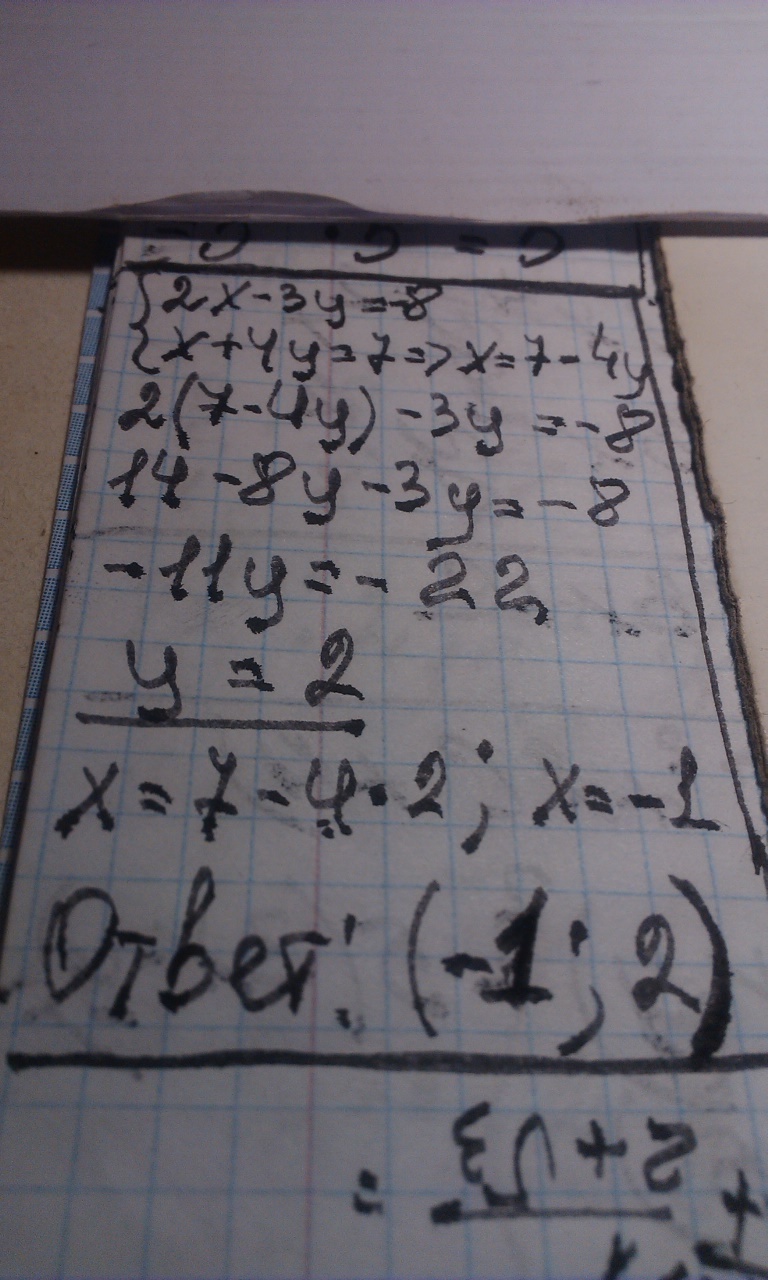 {2x-3y=-8
{x+4y=7=>x=7-4y
2(7-4y)-3y=-8
14-8y-3y=-8
-11y=-22
y=2
x=7-4·2; x=-1
Ответ: (-1; 2)
2+√3
=